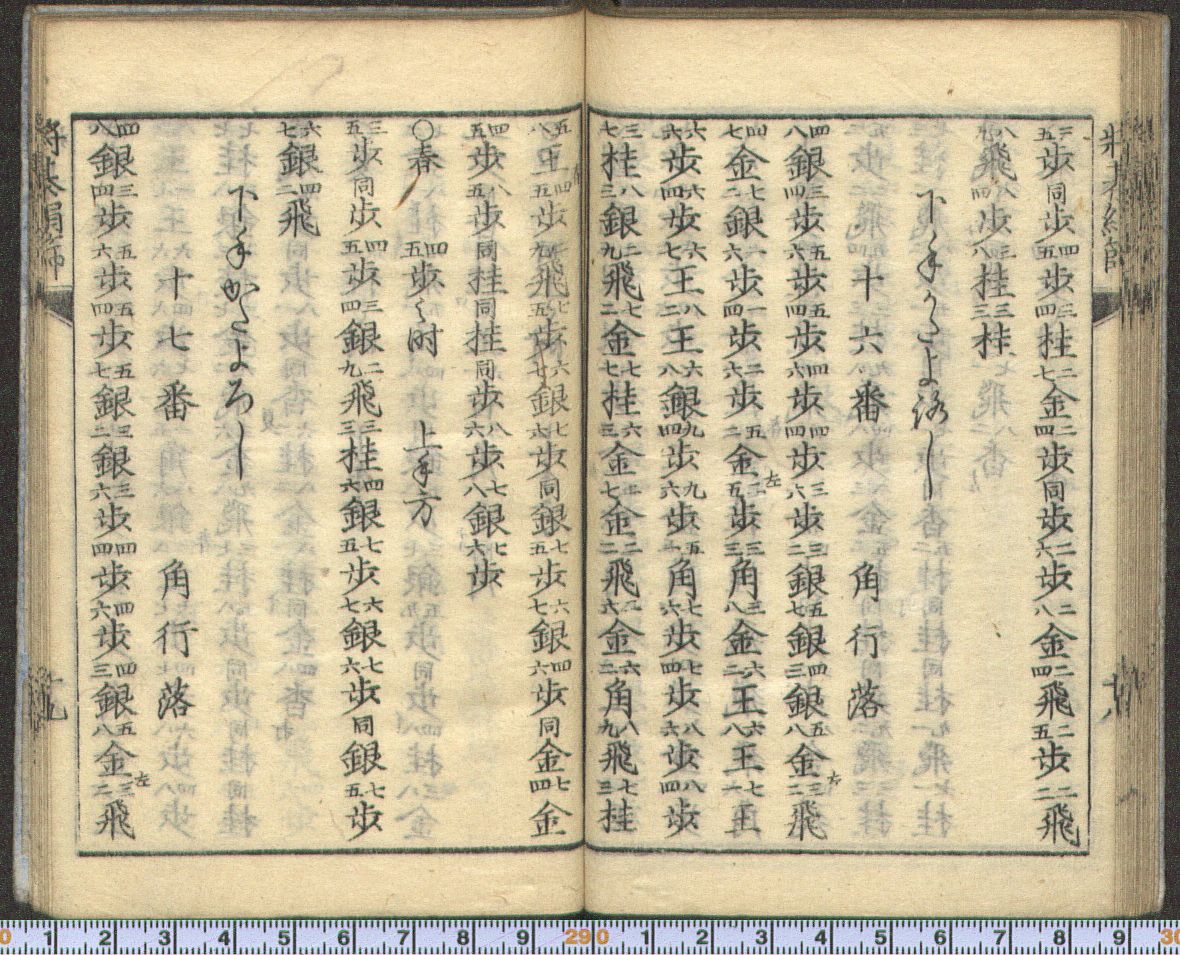 三五歩同歩四五歩三四桂二七金二四歩同歩二六歩二八金二四飛二五歩二二飛
飛六四歩三八桂三三桂
下手かたよ路し
十六番 角行落
四八銀三四歩五六歩五四歩四六歩四四歩三六歩三二銀五七銀四三銀五八金右三二飛
四七金七二銀六六歩一四歩二六歩五二金左二五歩三三角三八金六二王六八王七二王
六六歩六四歩六七王八二王六八銀九四歩九六歩角七六歩七四歩八六歩八四歩
三七桂八三銀二九飛七二金七七桂六三金金二二飛金六二角八九飛七三桂
五八王四五歩飛七五歩六七銀七六歩同銀七五歩六七銀四六歩同金七四金
四五歩八五歩同桂同桂同歩八六歩七八銀七六歩
○春 四五歩之時 上手方
三五歩同歩四五歩三四銀二九飛三三桂四六銀七五歩六七銀七六歩同銀七五歩
六七銀四二飛
下手かたよろし
十七番 角行落
四八銀三四歩五六歩五四歩五七銀三二銀三六歩四四歩四六歩四三銀五八金左三二飛
将棊絹篩
十九